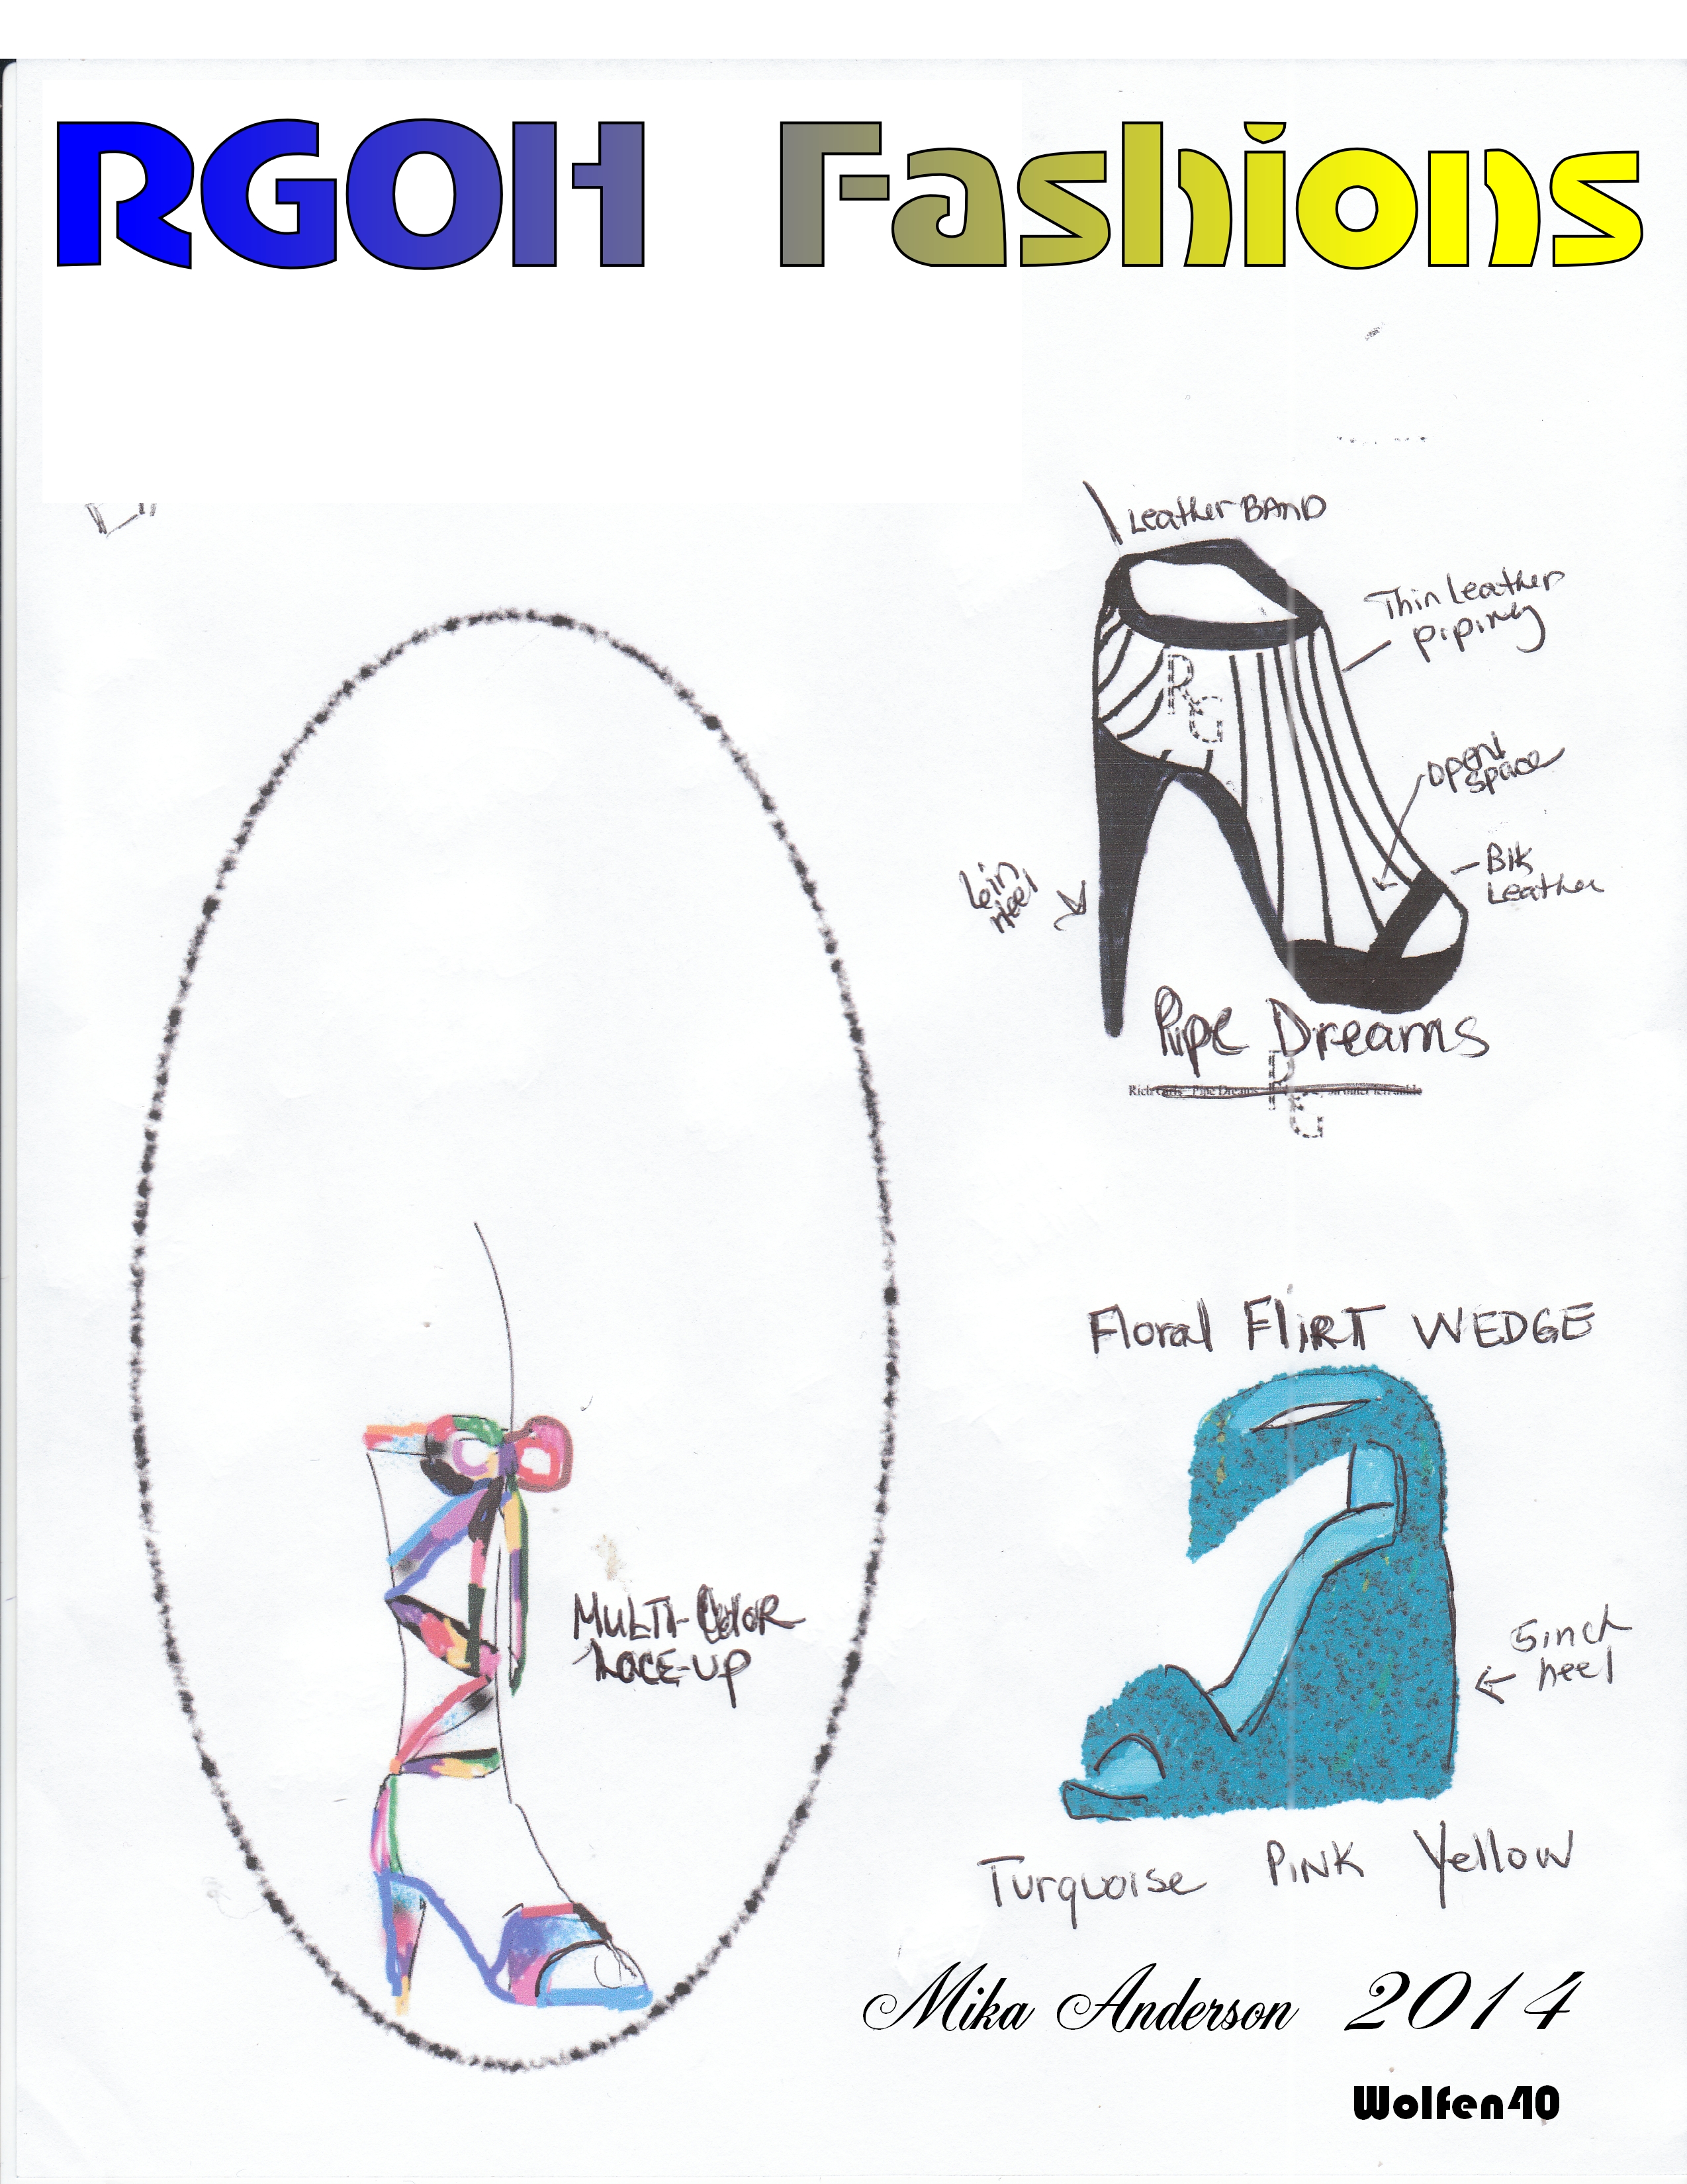 RGOH Fashions
Leather BAND
Thin Leather
piping
open
space
Blk
Leather
heel
RG
Pipe Dreams
Rich Girls Pipe Dreams on outer left ankle
RG
Floral FLiRT WEDGE
5inch
heel
MULTI-COLOR
LACE-UP
Turquoise PiNK Yellow
Mika Anderson 2014
Wolfen40